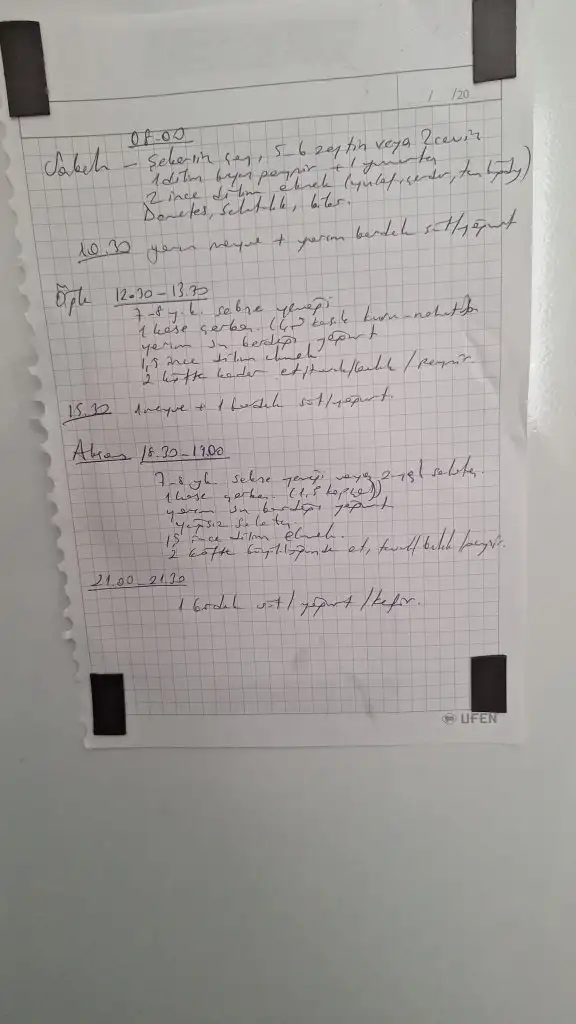 / /20
08.00
Sabah - Şekersiz çay, 5-6 zeytin veya 2 ceviz
1 dilim beyaz peynir + 1 yumurta
2 ince dilim ekmek (yulaf, çavdar, tam buğday)
Domates, salatalık, biber.
10.30 yarım meyve + yarım bardak süt/yoğurt
Öğle 12.30-13.30
7-8 y.k. sebze yemeği
1 kase çorba
yarım su bardağı yoğurt
1,5 ince dilim ekmek
2 köfte kadar et/tavuk/balık/peynir
15.30 1 meyve + 1 bardak süt/yoğurt.
Akşam 18.30-19.00
7-8 yk sebze yemeği veya
1 kase çorba (1,5 kepçe)
yarım su bardağı yoğurt
yağsız salata
1,5 ince dilim ekmek.
2 köfte büyüklüğünde et, tavuk/balık/peynir.
21.00-21.30
1 bardak süt/yoğurt/kefir.
UFEN